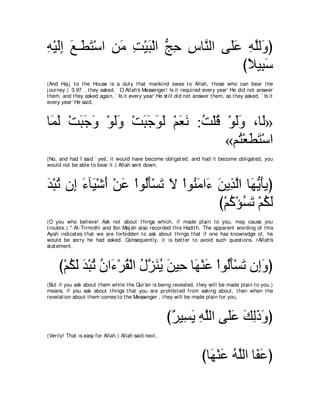 ﴿وَللَّهِ عَلَى النَّاسِ حِجُّ الْبَيْتِ مَنِ اسْتَطَـعَ إِلَيْهِ
سَبِيلاً﴾
(And Hajj to the House is a duty that mankind owes to Allah, those who can bear the
journey.) 3:97 , they asked, `O Allah's Messenger! Is it required every year' He did not answer
them, and they asked again, `Is it every year' He still did not answer them, so they asked, `Is it
every year' He said,
«لَا، وَلَوْ قُلْتُ: نَعَمْ لَوَجَبَتْ وَلَوْ وَجَبَتْ لَمَا
اسْتَطَعْتُم»
(No, and had I said `yes', it would have become obligated, and had it become obligated, you
would not be able to bear it.) Allah sent down,
﴿يَأَيُّهَا الَّذِينَ ءَامَنُواْ لاَ تَسْأَلُواْ عَنْ أَشْيَآءَ إِن تُبْدَ
لَكُمْ تَسُؤْكُمْ﴾
(O you who believe! Ask not about things which, if made plain to you, may cause you
trouble.)." At-Tirmidhi and Ibn Majah also recorded this Hadith. The apparent wording of this
Ayah indicates that we are forbidden to ask about things that if one has knowledge of, he
would be sorry he had asked. Consequently, it is better to avoid such questions. rAllah's
statement,
﴿وَإِن تَسْأَلُواْ عَنْهَا حِينَ يُنَزَّلُ الْقُرْءَانُ تُبْدَ لَكُمْ﴾
(But if you ask about them while the Qur'an is being revealed, they will be made plain to you.)
means, if you ask about things that you are prohibited from asking about, then when the
revelation about them comes to the Messenger , they will be made plain for you,
﴿وَذَلِكَ عَلَى اللَّهِ يَسِيرٌ﴾
(Verily! That is easy for Allah.) Allah said next,
﴿عَفَا اللَّهُ عَنْهَا﴾